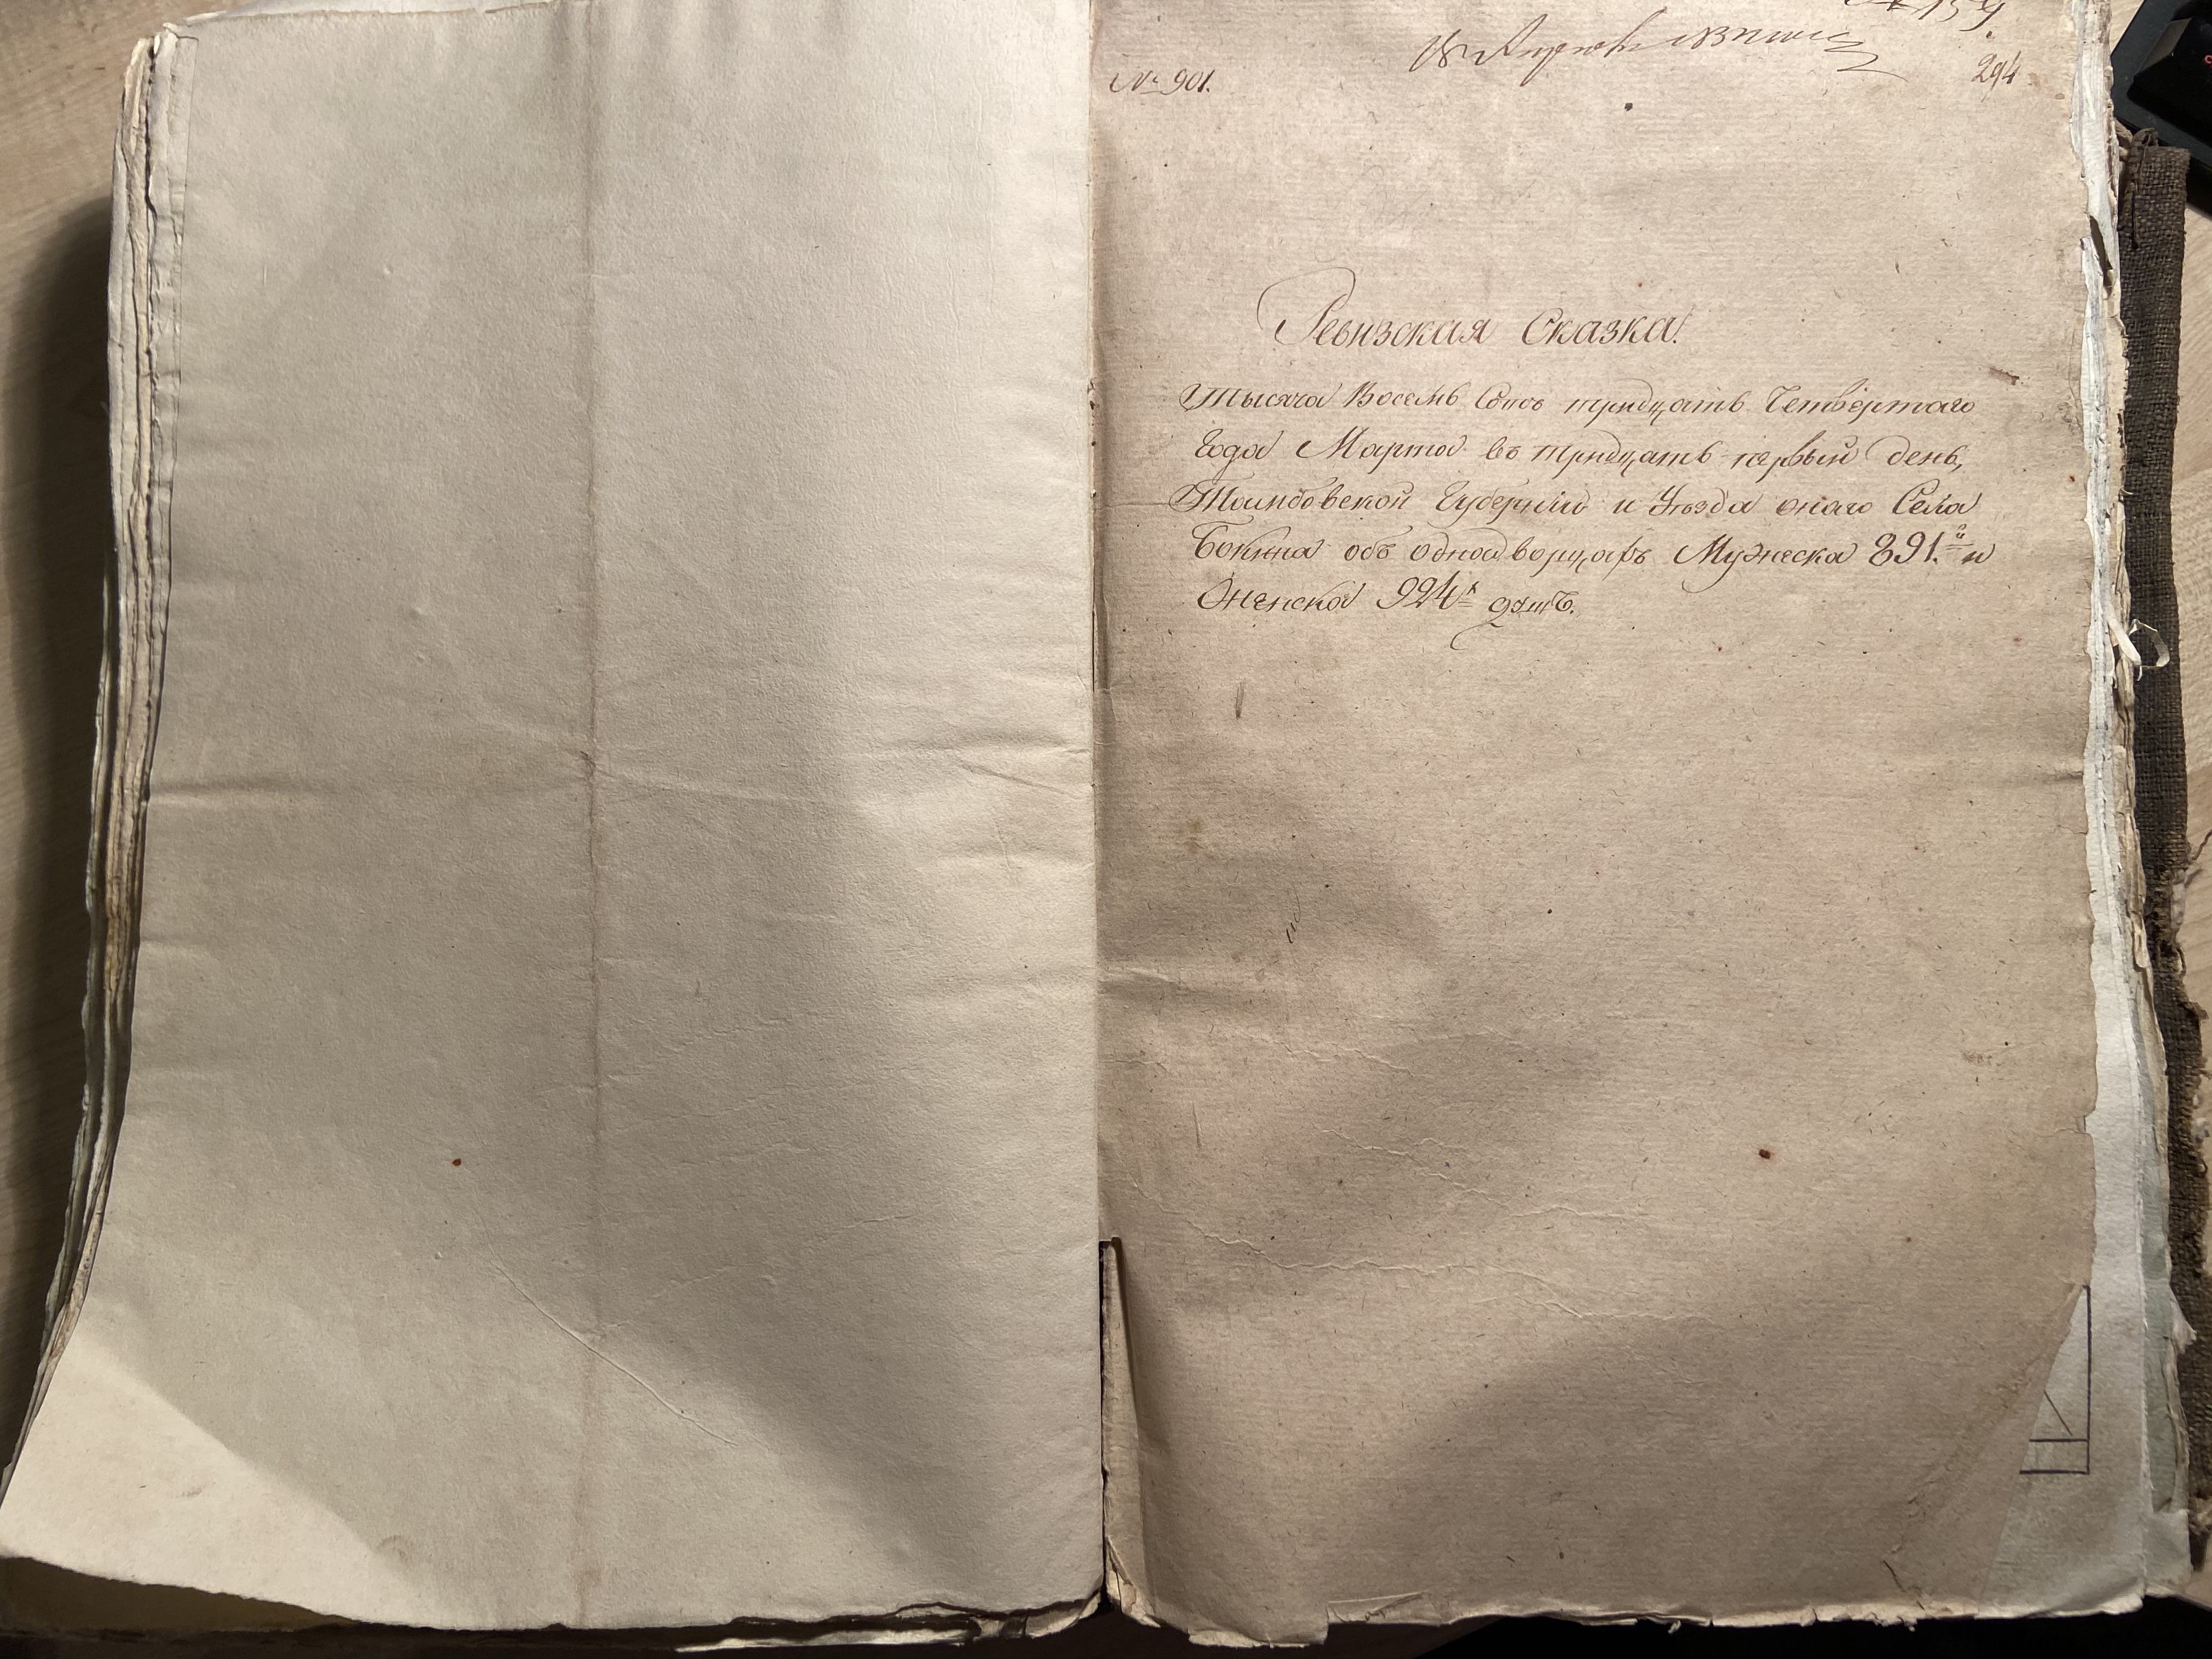 № 901.
294
Ревизская Сказка.
Тысяча Восемь Сотъ тридцать Четвертаго
Года Марта въ тридцать первый день,
Тамбовской Губернии и Уѣзда онаго Села
Бокина объ однодворцахъ Мужеска 891.й и
Женска 924х душъ.